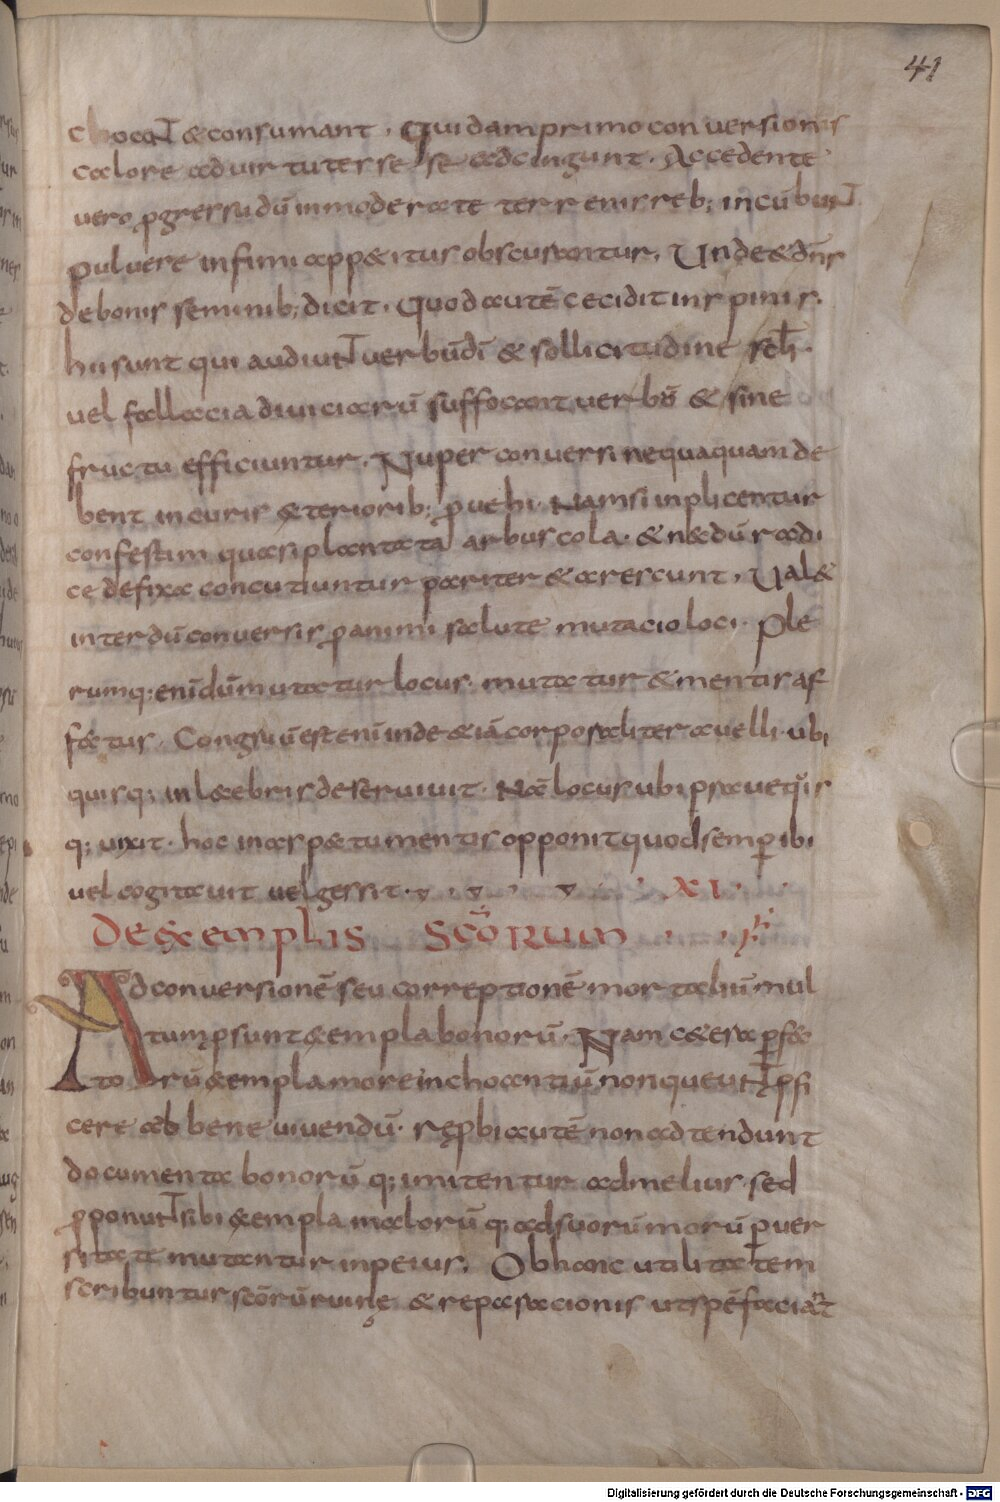 41
choant & consumant. Quidam primo conversionis
calore ad virtutes se se adcingunt. Accedente
vero ꝑgressu dū inmoderate terrenis reb; incūbunt
pulvere infimi app&itus obscurantur. Unde & dn̄s
de bonis seminib; dicit. Quod autē cecidit in spinis.
hii sunt qui audiunt verbū dī & sollicitudine scłi.
vel fallacia diviciarū suffocant verbū & sine
fructu efficiuntur. Nuper conversi nequaquam de
bent in curis &teriorib; ꝓvehi. Nam si inplicentur
confestim quasi plantata arbuscola. & nædū radi
ce defixa concutiuntur pariter & arescunt. Val&
interdū conversis ꝓ animi salute mutacio loci. Ple
rumq; enī dūm mutatur locus. mutatur & mentis af
fætus. Congruū est enī inde & iā corporaliter avelli. ubi
quisq; inlæbris deservivit. Nā locus ubi prave quis
q; vixit. hoc in aspætu mentis opponit quod semꝑ ibi
vel cogitavit vel gessit. XI.
De exemplis scōrum
Ad conversionē seu correptionē mortaliū mul
tum ꝓsunt exempla bonorū. Nam c&era ꝑfæ
torū exempla more inchoantiū non queunt ꝓfi
cere ab bene vivendū. reꝓbi autē non adtendunt
documenta bonorū q; imitentur ad melius. sed
ꝓponunt sibi exempla malorū q; ad suorū morū ꝑver
sitate mutantur in peius. Ob hanc utilitatem
scribuntur scōrū ruinę & reparacionis ut spē faciant
Digitalisierung gefördert durch die Deutsche Forschungsgemeinschaft - DFG